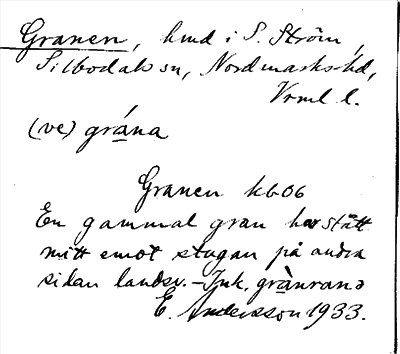 Granen, hmd i S. Ström,
Silbodals sn, Nordmarks hd,
Vrml l.
(ve) grána
Granen kb06
En gammal gran har stått
mitt emot stugan på andra
sidan landsv. – Ink. grànrana
E. Andersson 1933.